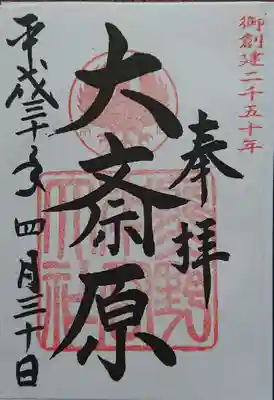 御創建二千五十年
奉拝
大斎原
平成三十年 四月三十日